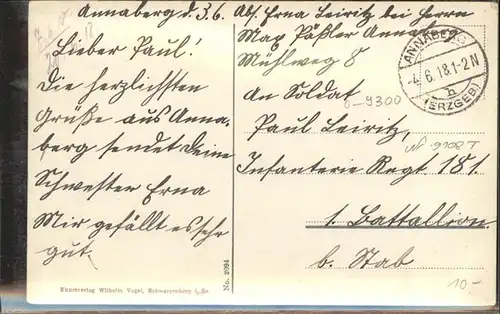 Annaberg d. 3.6.
Lieber Paul!
Die herzlichsten
Grüße aus Anna-
berg sendet Deine
Schwester Erna
Mir gefällt es sehr
gut.
Kunstverlag Wilhelm Vogel, Schwarzenberg i. Sa.
No. 2994
Abs. Erna Leiritz bei Herrn
Max Päßler Annaberg
Mühlweg 8
ANNABERG
4.6.18.1-2N
h
(ERZGEB)
An Soldat
9300
Paul Leiritz,
Infanterie Regt 181
1. Battallion
b. Stab
10.-